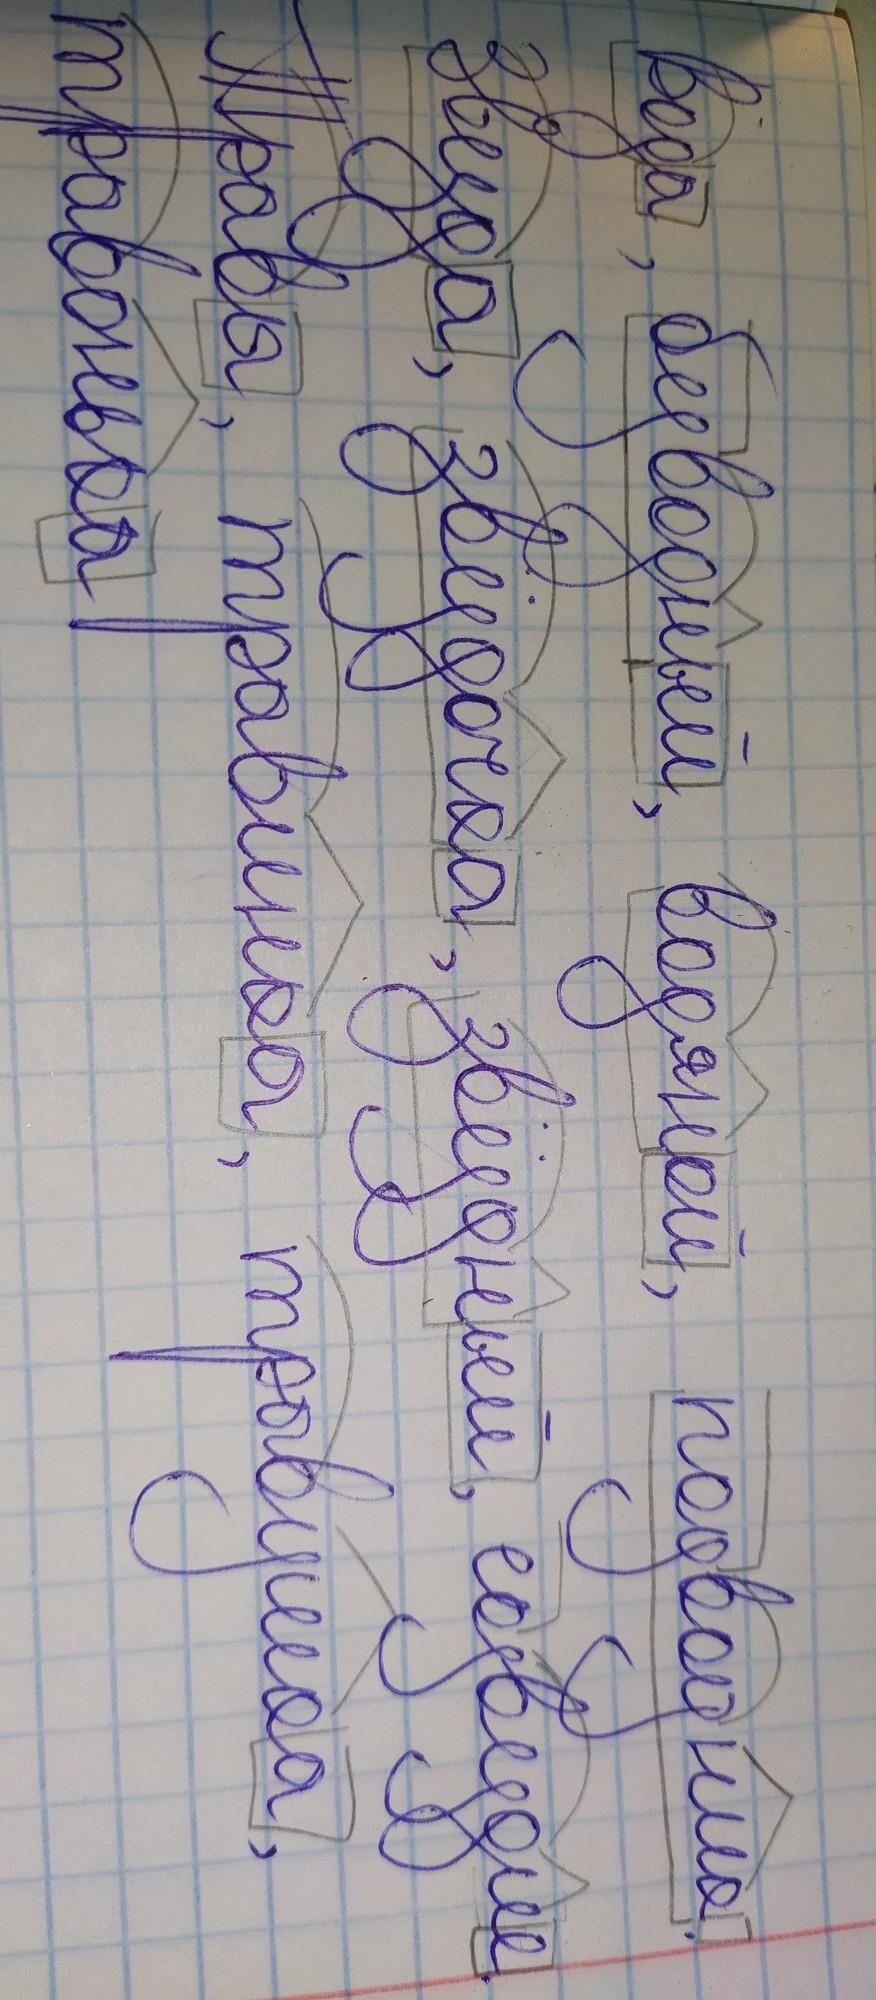 вода, безводный, водяной, подводника.
звезда, звёздочка, звёздный, созвездие.
Травы, травинка, травушка,
травонька